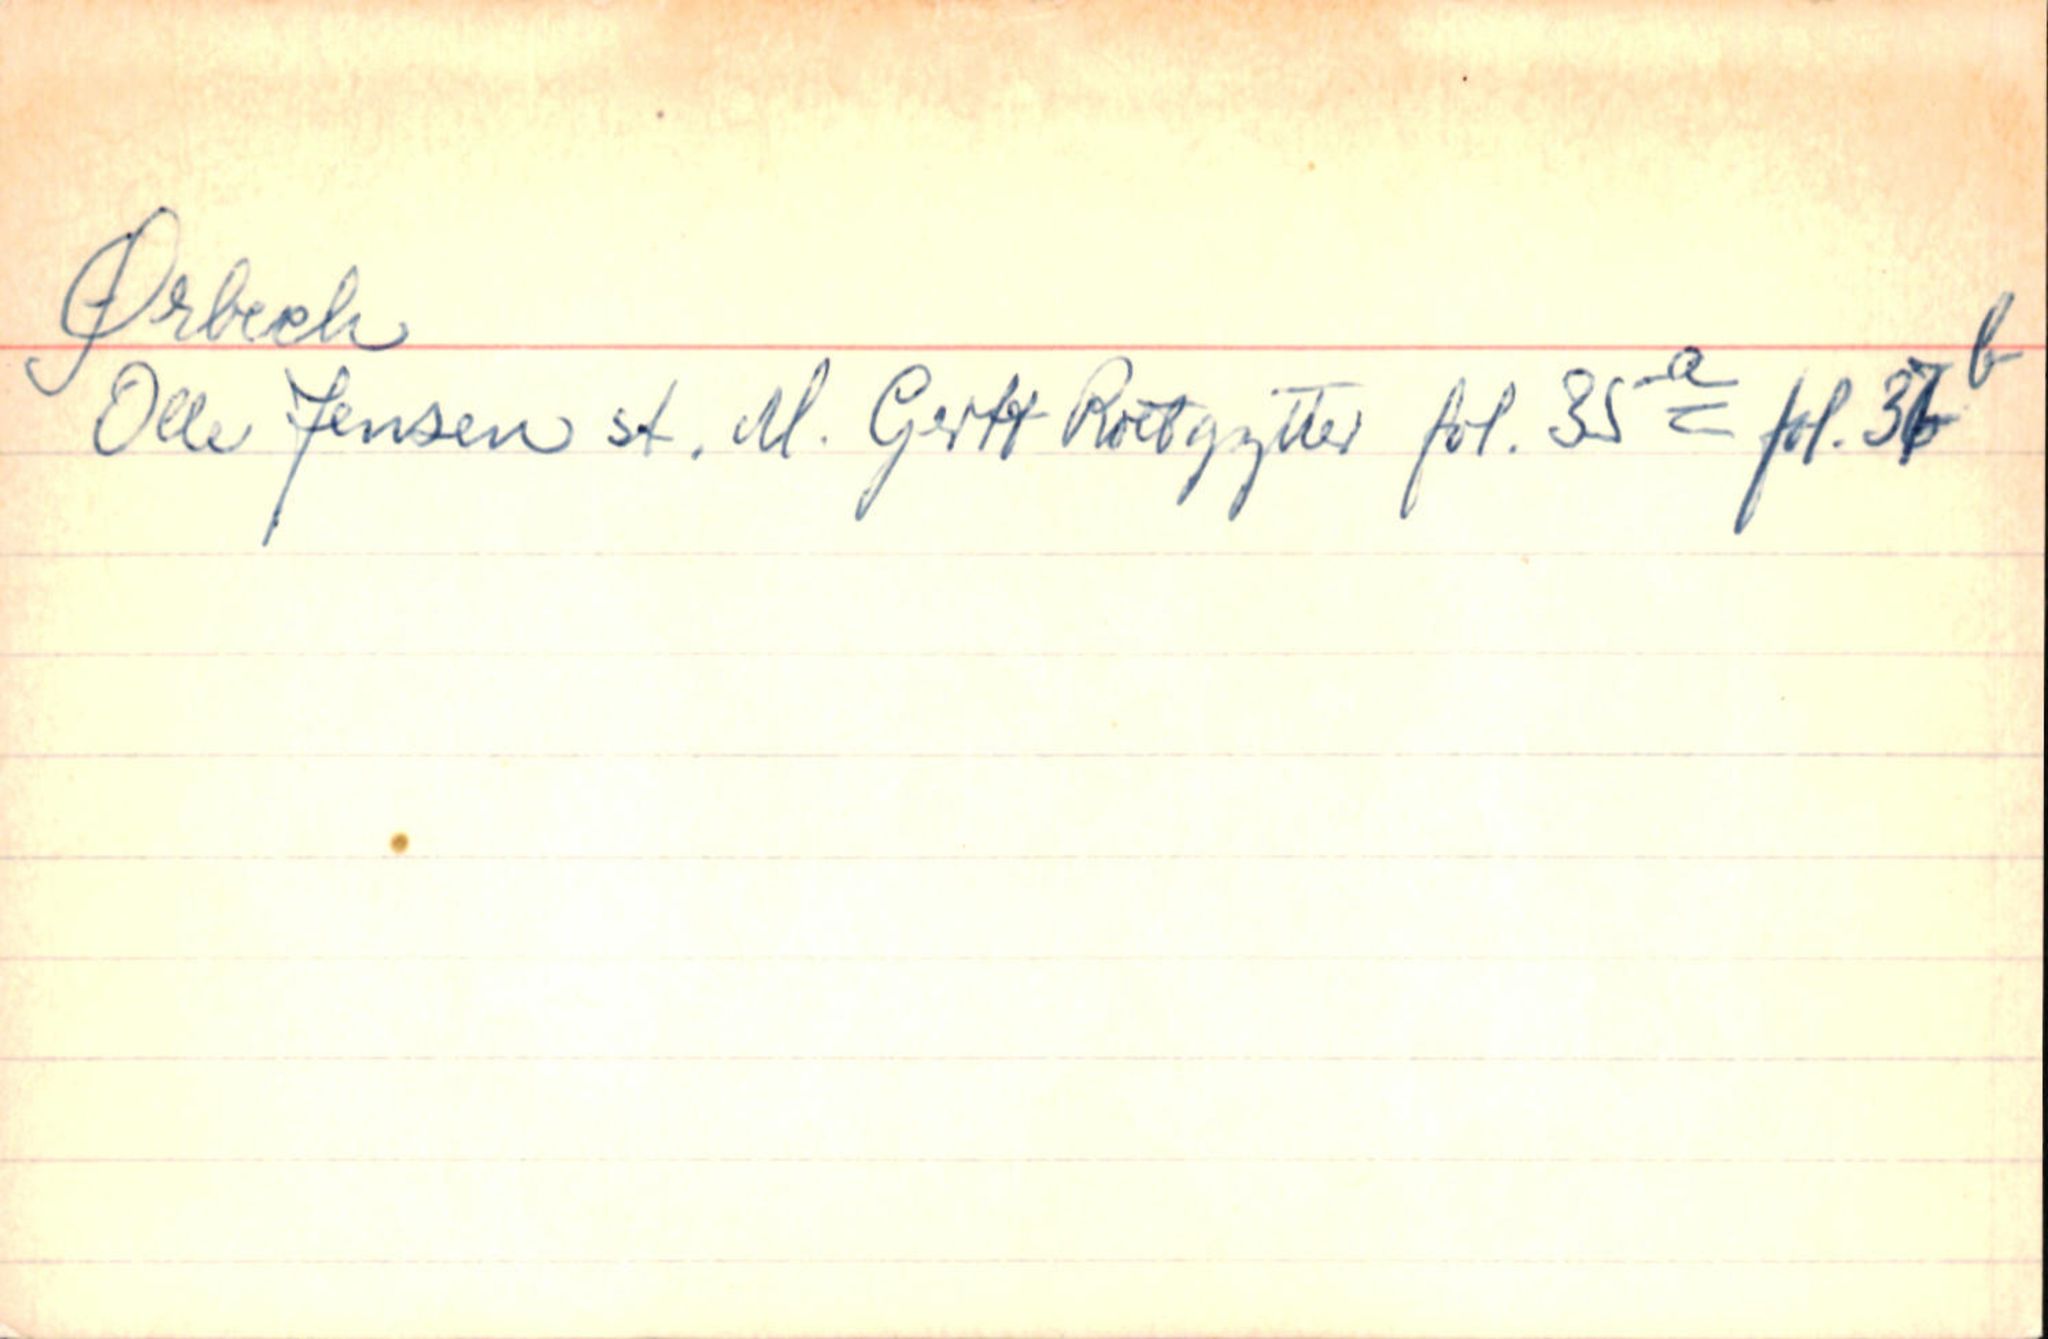 Ørbech
Olle Jensen st. M. Gertt Rotbgytter fol. 35 a = fol. 36 b